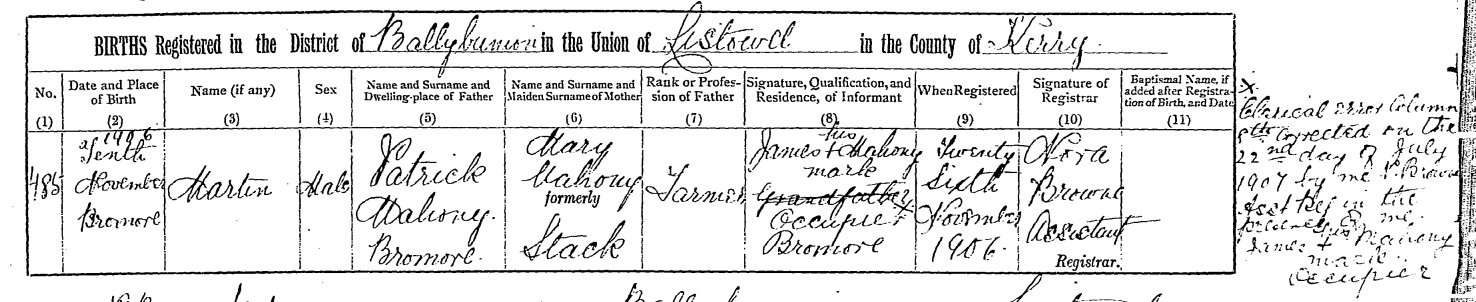 BIRTHS Registered in the District of Ballybunion in the Union of Listowel in the County of Kerry.
No.
(1)
Date and Place
of Birth
(2)
Name (if any)
(3)
Sex
(4)
Name and Surname and
Dwelling-place of Father
(5)
Name and Surname and
Maiden Surname of Mother
(6)
Rank or Profes-
sion of Father
(7)
Signature, Qualification, and
Residence, of Informant
(8)
When Registered
(9)
Signature of
Registrar
(10)
Baptismal Name, if
added after Registra-
tion of Birth, and Date
(11)
485
1906
Tenth
November
Bromore
Martin
Male
Patrick
Mahony.
Bromore.
Mary
Mahony
formerly
Stack
Farmer
his
James + Mahony
mark
Grandfather
Occupier
Bromore
Twenty
Sixth
November
1906.
Nora
Browne
Assistant
Registrar.
X.
Clerical error Column
8th corrected on the
22nd day of July
1907 by me N. Browne
Asst Reg in the
presence of me.
his
James + Mahony
mark
Occupier